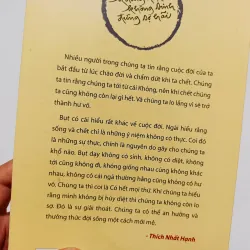 Nhiều người trong chúng ta tin rằng cuộc đời của ta
bắt đầu từ lúc chào đời và chấm dứt khi ta chết. Chúng
ta tin rằng chúng ta tới từ cái Không, nên khi chết chúng
ta cũng không còn lại gì hết. Và chúng ta lo lắng vì sẽ trở
thành hư vô.
Bụt có cái hiểu rất khác về cuộc đời. Ngài hiểu rằng
sống và chết chỉ là những ý niệm không có thực. Coi đó
là những sự thực, chính là nguyên do gây cho chúng ta
khổ não. Bụt dạy không có sinh, không có diệt, không
tới cũng không đi, không giống nhau cũng không khác
nhau, không có cái ngã thường hằng cũng không có hư
vô. Chúng ta thì coi là Có hết mọi thứ. Khi chúng ta hiểu
rằng mình không bị hủy diệt thì chúng ta không còn lo
sợ. Đó là sự giải thoát. Chúng ta có thể an hưởng và
thưởng thức đời sống một cách mới mẻ.
- Thích Nhất Hạnh